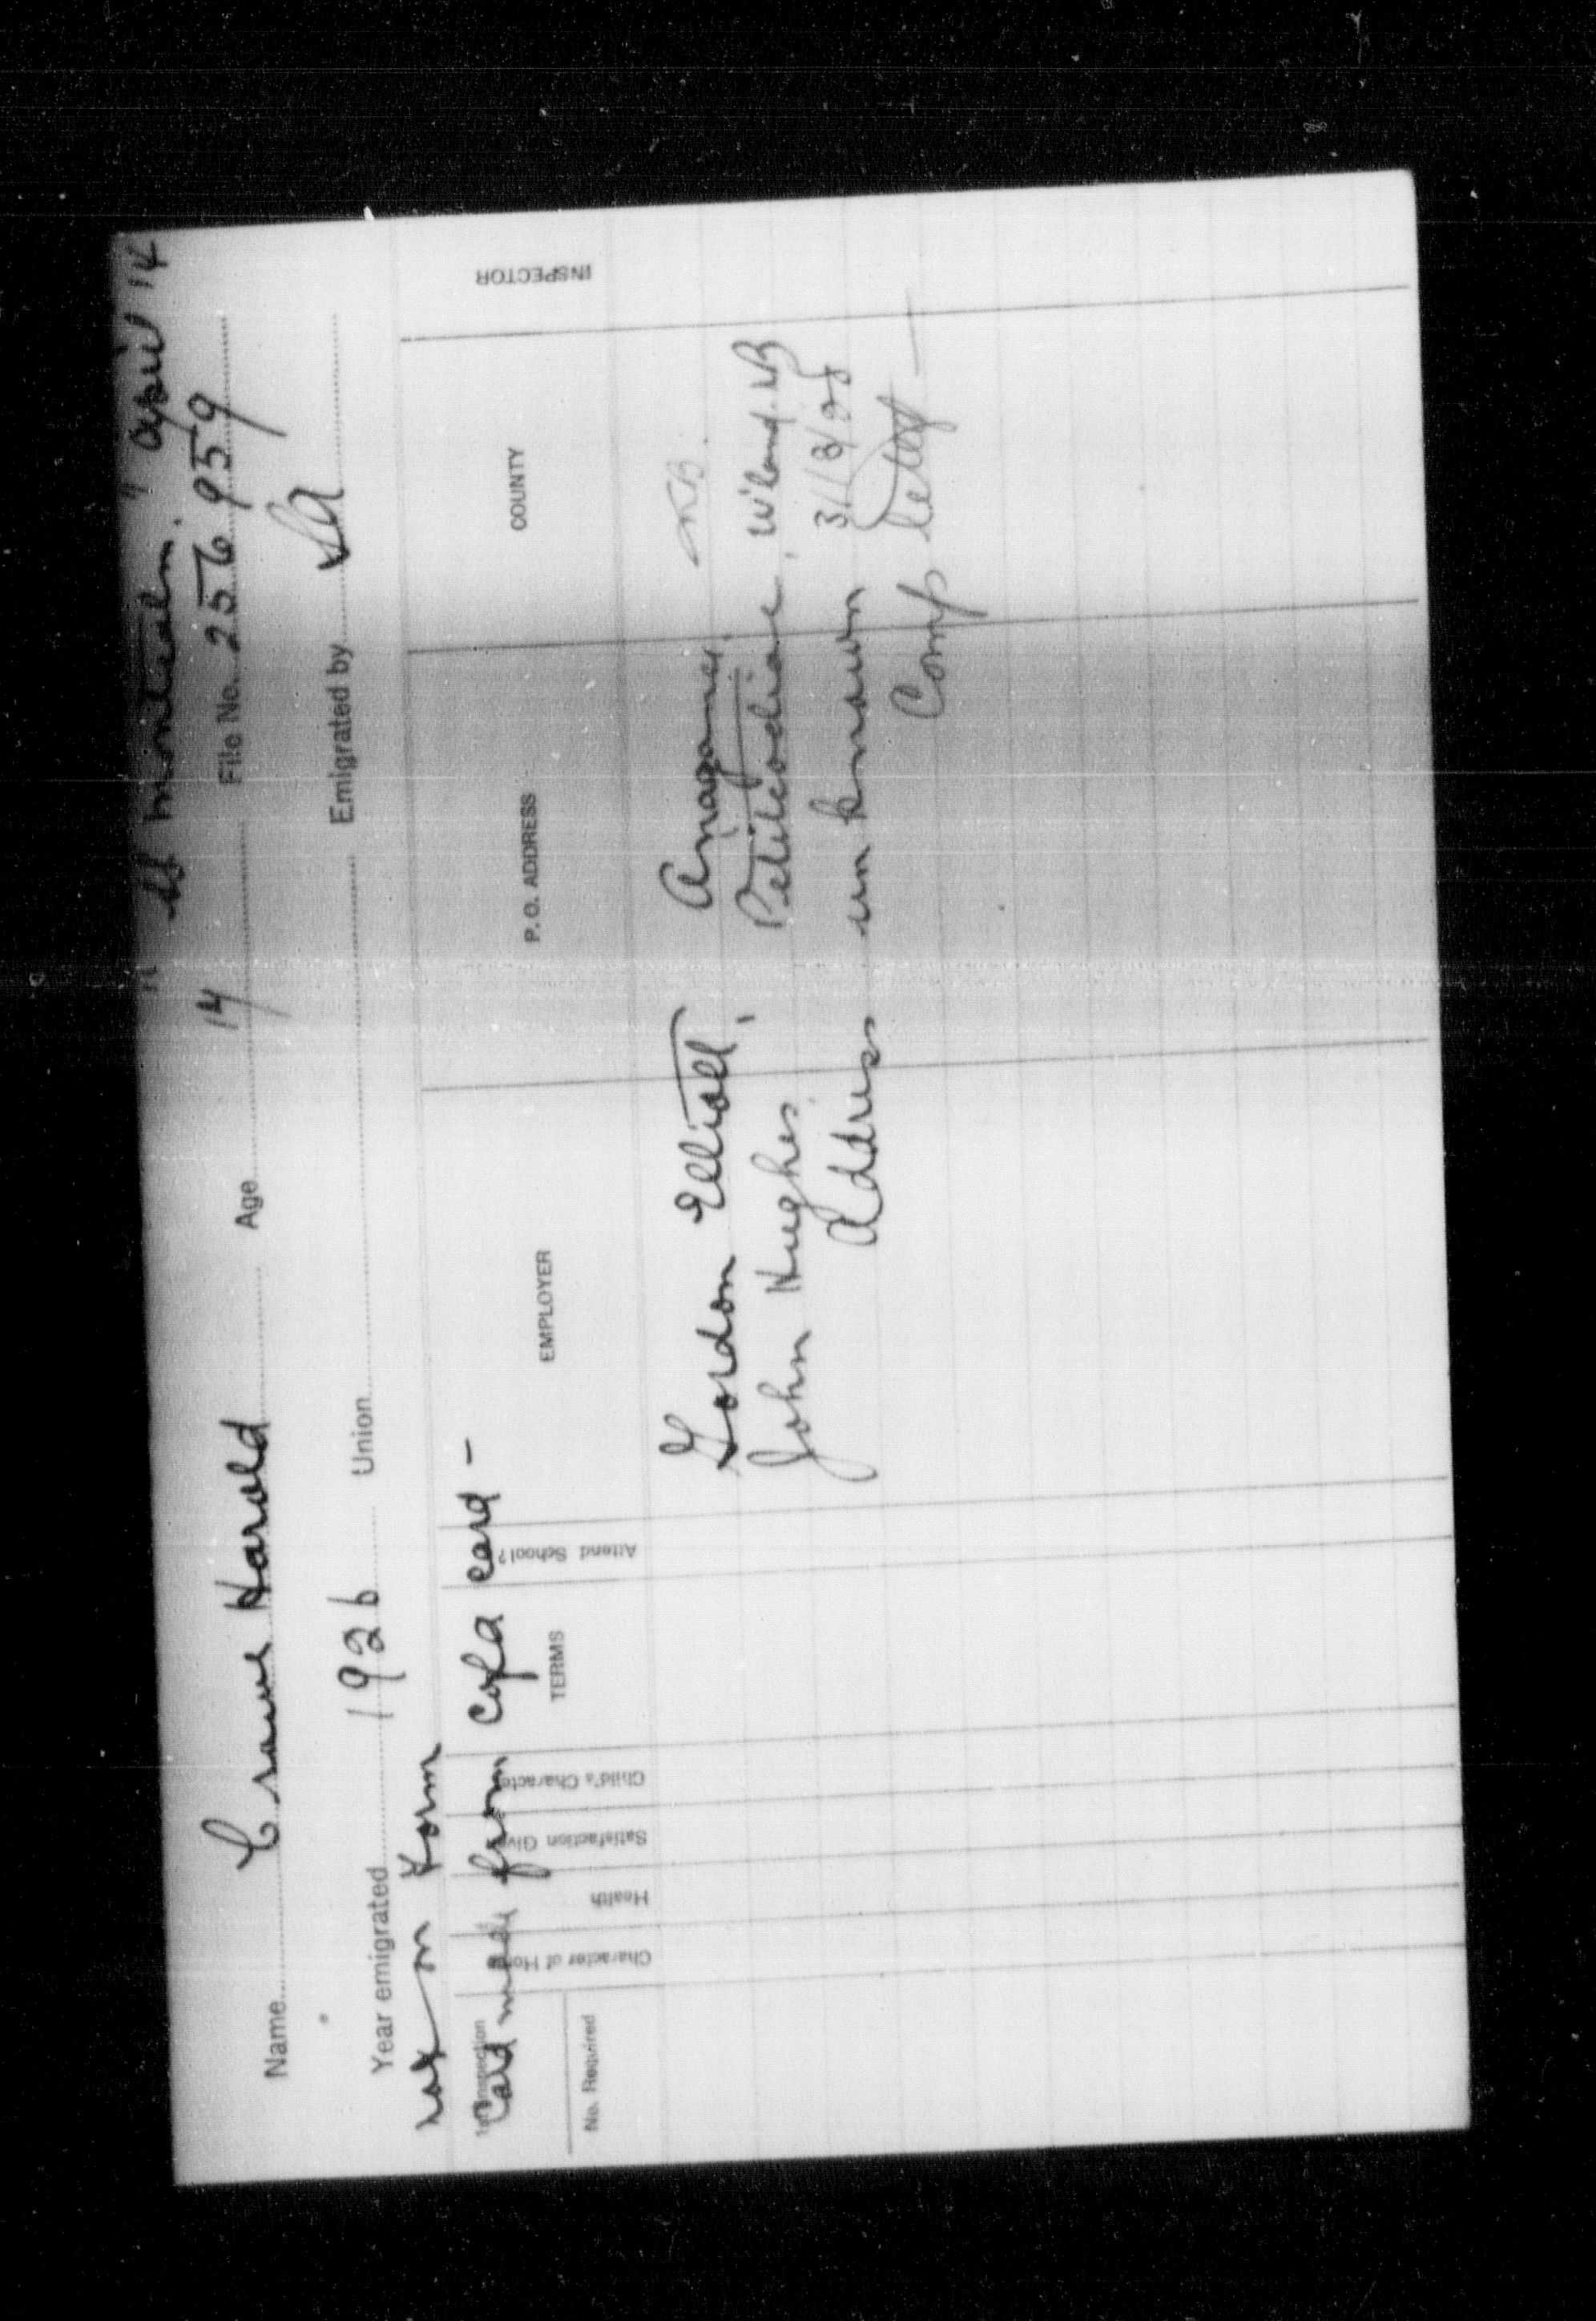 " SS Montcalm. " April 14
Name Crane Harold Age 14 File No. 256959
Year emigrated 1926 Union Emigrated by SA
not on Form
Card made from Cofa card –
1st Inspection
No. Required
Character of Home
Health
Satisfaction Given
Child's Character
TERMS
Attend School?
EMPLOYER
P. O. ADDRESS
COUNTY
INSPECTOR
Gordon Elliott, Anagance, NB.
John Hughes, Petitcodiac, W'land. NB
Address unknown 31/3/28
Comp letted —